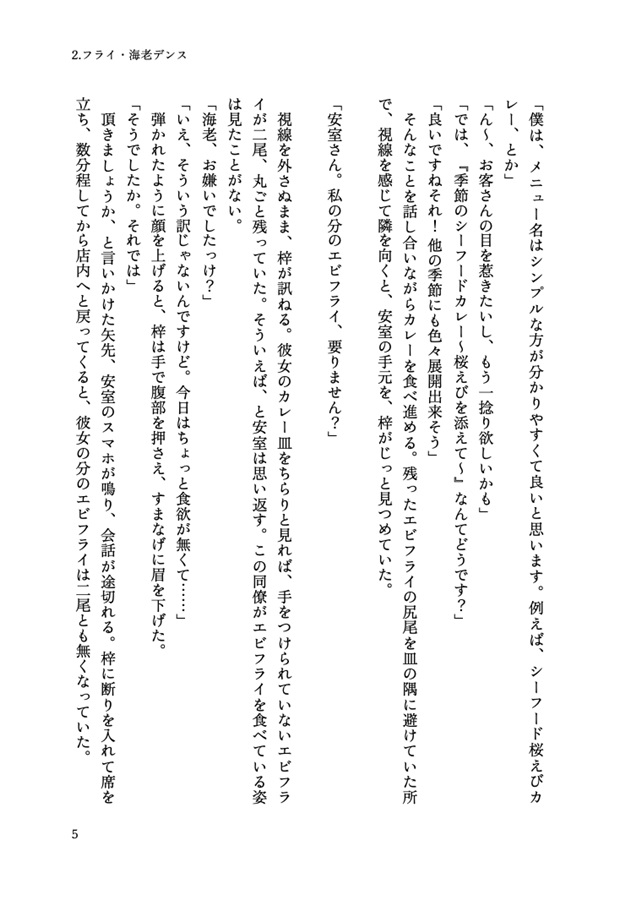 2.フライ・海老デンス
「僕は、メニュー名はシンプルな方が分かりやすくて良いと思います。例えば、シーフード桜えびカ
レー、とか」
「ん〜、お客さんの目を惹きたいし、もう一捻り欲しいかも」
「では、『季節のシーフードカレー〜桜えびを添えて〜』なんてどうです？」
「良いですねそれ！他の季節にも色々展開出来そう」
そんなことを話し合いながらカレーを食べ進める。残ったエビフライの尻尾を皿の隅に避けていた所
で、視線を感じて隣を向くと、安室の手元を、梓がじっと見つめていた。
「安室さん。私の分のエビフライ、要りません？」
視線を外さぬまま、梓が訊ねる。彼女のカレー皿をちらりと見れば、手をつけられていないエビフラ
イが二尾、丸ごと残っていた。そういえば、と安室は思い返す。この同僚がエビフライを食べている姿
は見たことがない。
「海老、お嫌いでしたっけ？」
「いえ、そういう訳じゃないんですけど。今日はちょっと食欲が無くて……」
弾かれたように顔を上げると、梓は手で腹部を押さえ、すまなげに眉を下げた。
「そうでしたか。それでは」
頂きましょうか、と言いかけた矢先、安室のスマホが鳴り、会話が途切れる。梓に断りを入れて席を
立ち、数分程してから店内へと戻ってくると、彼女の分のエビフライは二尾とも無くなっていた。
5